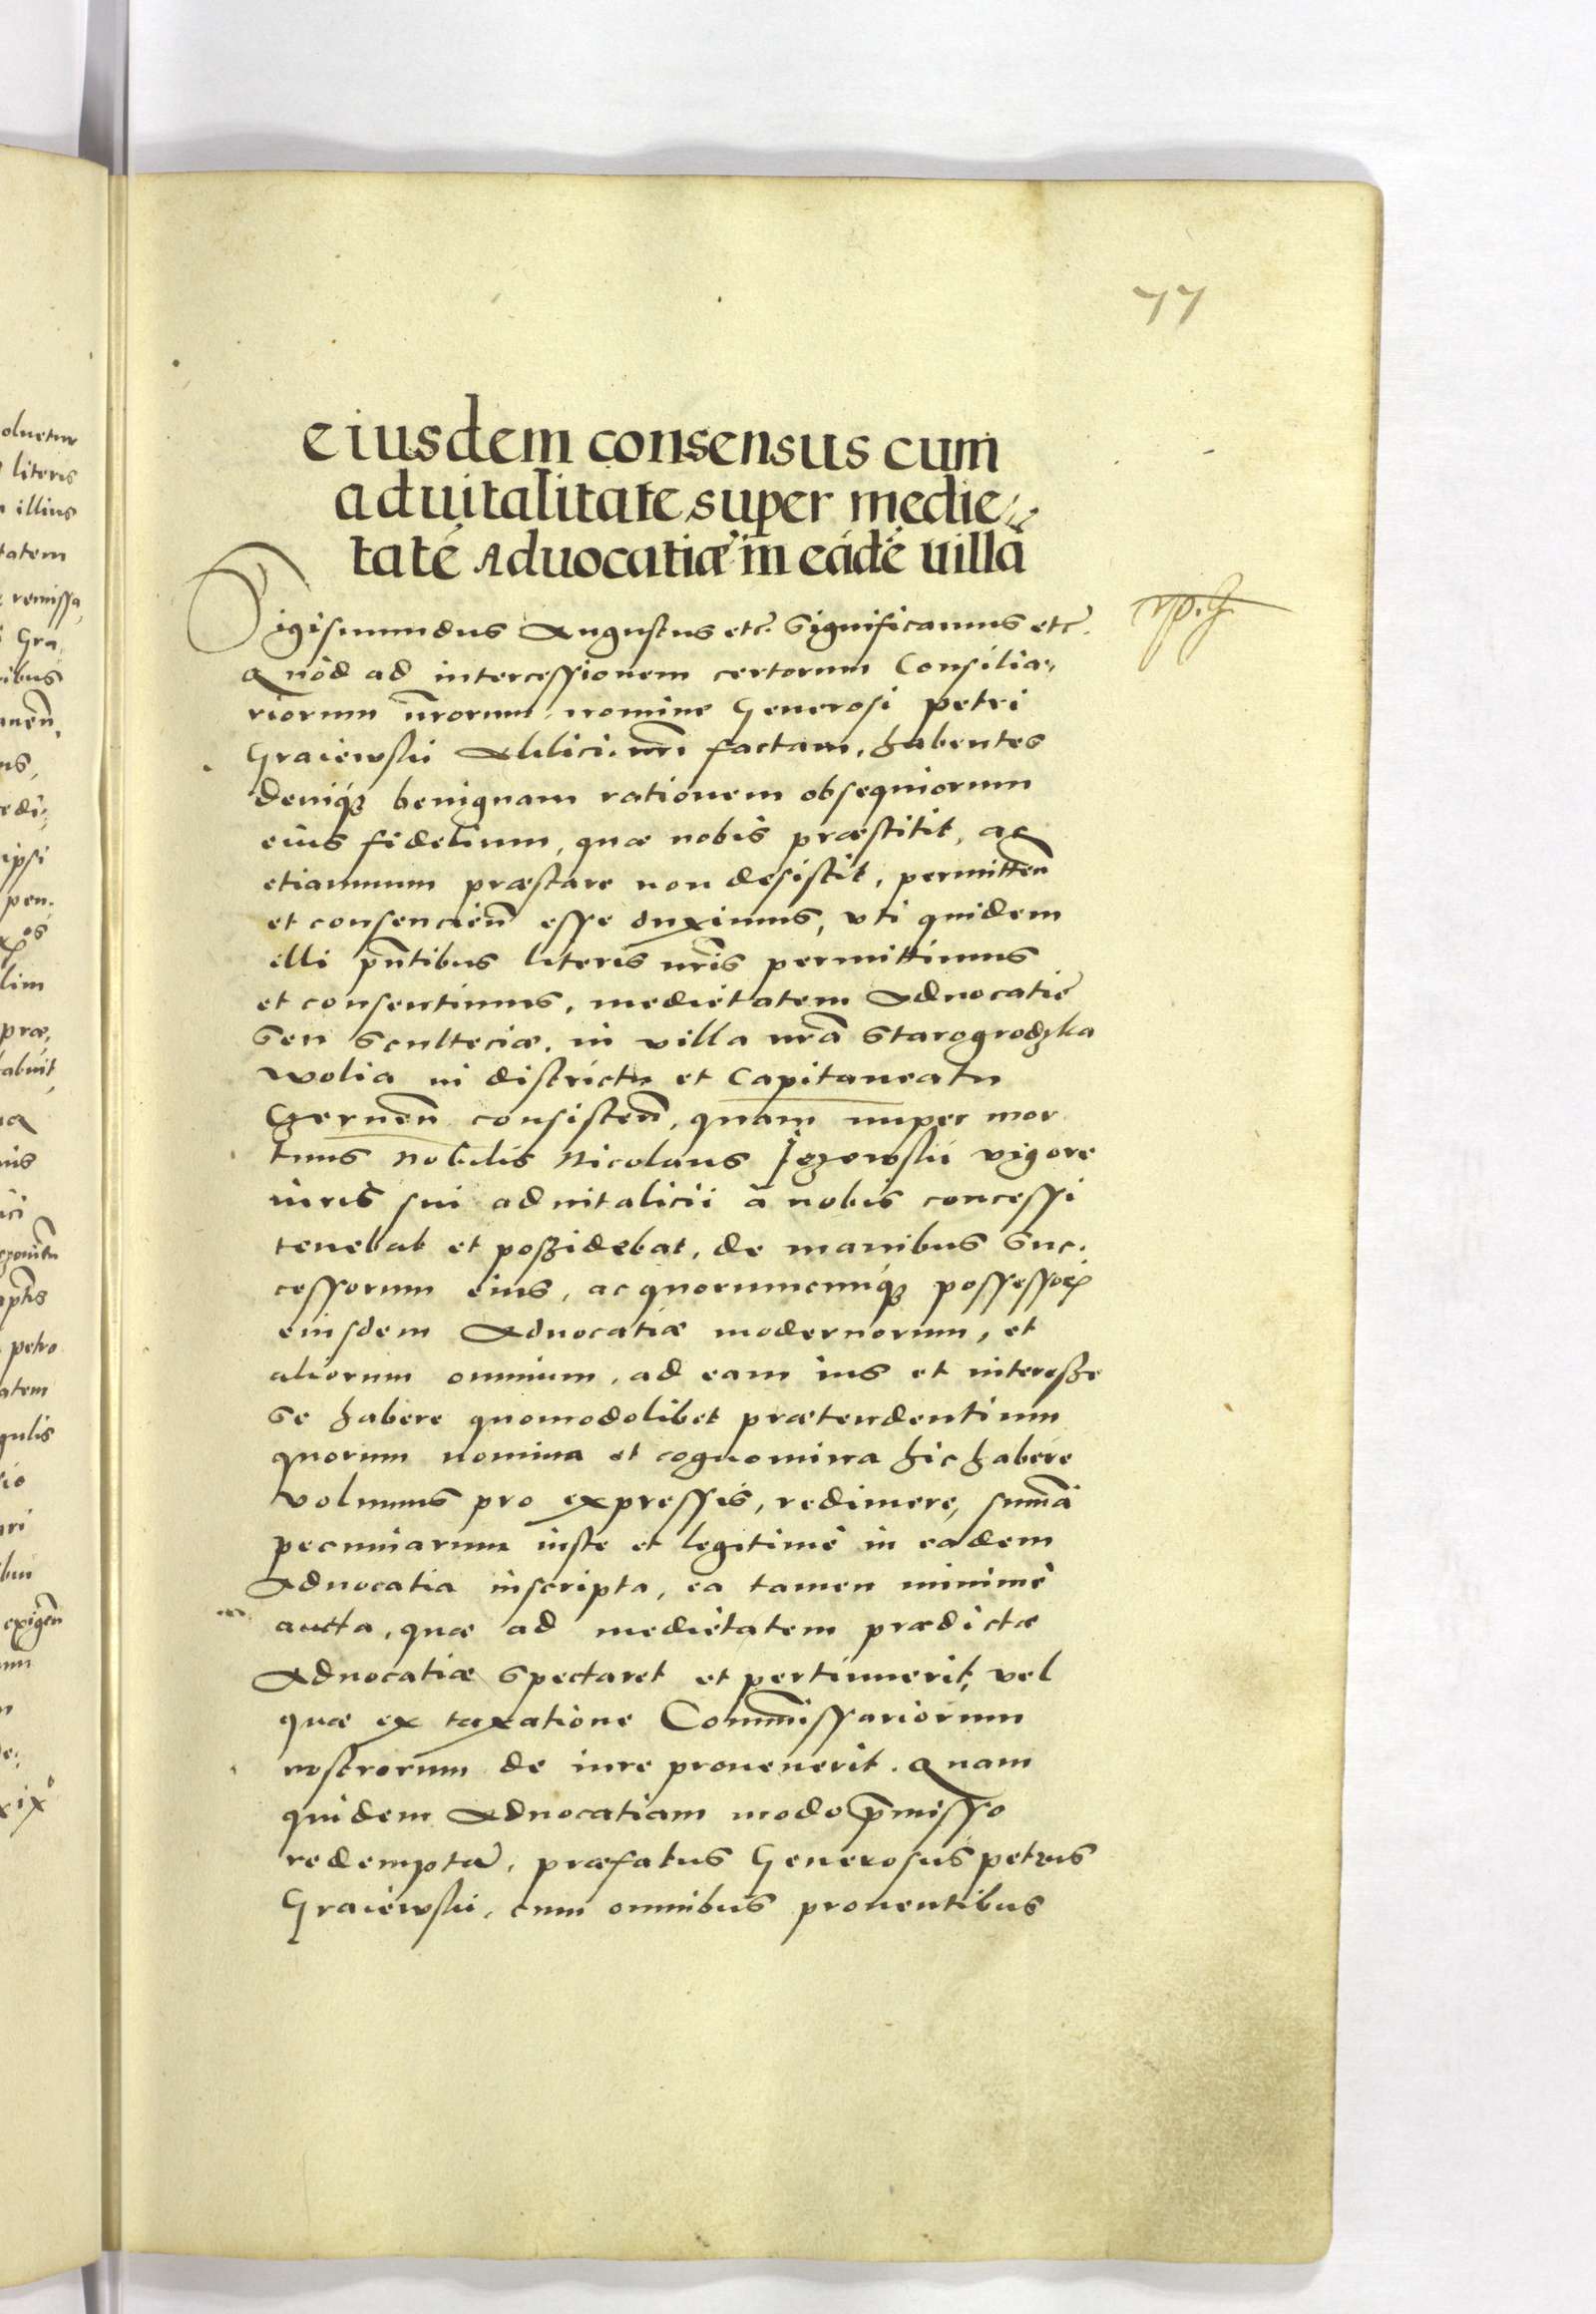 77
eiusdem consensus cum
aduitalitate super medie
tatē Aduocatiæ in eādē villa
Sigismundus Augustus etc. Significamus etc.
Quòd ad intercessionem certorum Consilia,,
riorum nrorum, nomine Generosi petri
Graiewski Aulici nri factam, habentes
deniq3 benignam rationem obsequiorum
eius fidelium, quæ nobis præstitit, ac
etiamnum præstare non desistit, permitten̄
et consencien̄ esse duximus, vti quidem
illi pñtibus literis nris permittimus
et consentimus, medietatem Aduocatie
Seu Scultecię, in villa nrā Starogrodzka
wolia in districtu et Capitaneatu
Czernen̄ consisten̄, quam nuper mor
tuus Nobilis Nicolaus Jezewski vigore
iuris sui aduitalicii à nobis concessi
tenebat et possidebat, de manibus Suc.
cessorum eius, ac quorumcunq3 possessorꝝ
eiusdem Aduocatiæ modernorum, et
aliorum omnium, ad eam ius et interesse
Se habere quomodolibet prætendentium
quorum nomina et cognomina hic habere
volumus pro expressis, redimere, summā
pecuniarum iuste et legitimè in eadem
Aduocatia inscripta, ea tamen minimè
aucta, quæ ad medietatem prædictæ
Aduocatiæ Spectaret et pertinuerit, vel
quæ ex taxatione Commissariorum
nostrorum de iure prouenerit. Quam
quidem Aduocatiam modo p̄misso
redemptā, præfatus Generosus petrus
Graiewski, cum omnibus prouentibus